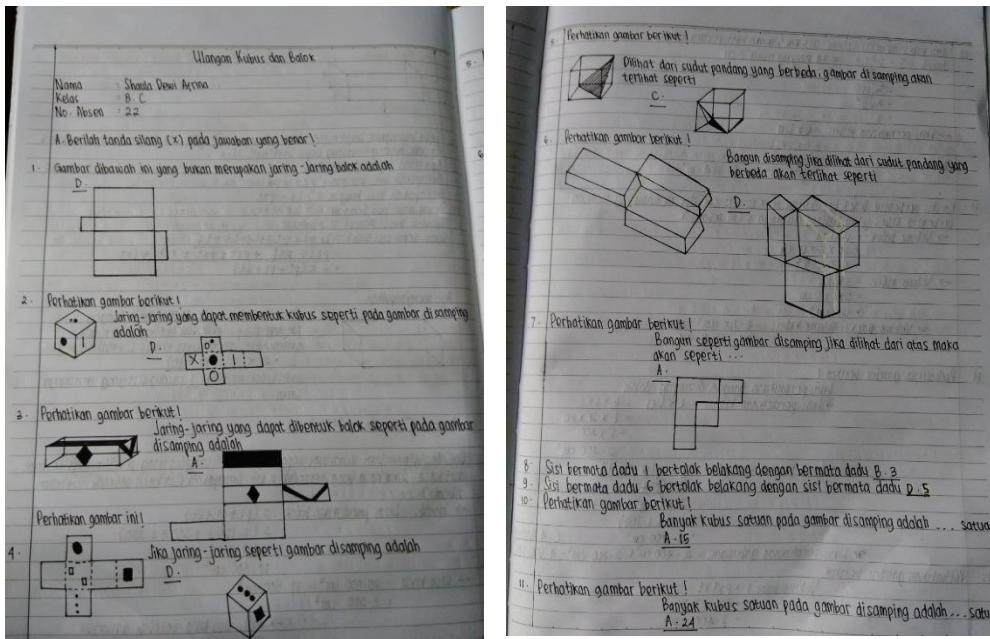 Ulangan Kubus dan Balok
Nama : Shaida Dewi Agrina
Kelas : 8.C
No. Absen : 22
A. Berilah tanda silang (x) pada jawaban yang benar!
1. Gambar dibawah ini yang bukan merupakan jaring-jaring balok adalah
D.
2. Perhatikan gambar berikut!
Jaring-jaring yang dapat membentuk kubus seperti pada gambar disamping
adalah
D.
3. Perhatikan gambar berikut!
Jaring-jaring yang dapat dibentuk balok seperti pada gambar
disamping adalah
A.
Perhatikan gambar ini!
4. Jika jaring-jaring seperti gambar disamping adalah
D.
5. Perhatikan gambar berikut!
Dilihat dari sudut pandang yang berbeda, gambar di samping akan
terlihat seperti
C.
6. Perhatikan gambar berikut!
Bangun disamping jika dilihat dari sudut pandang yang
berbeda akan terlihat seperti
D.
7. Perhatikan gambar berikut!
Bangun seperti gambar disamping jika dilihat dari atas maka
akan seperti ...
A.
8. Sisi bermata dadu 1 bertolak belakang dengan bermata dadu B. 3
9. Sisi bermata dadu 6 bertolak belakang dengan sisi bermata dadu D. 5
10. Perhatikan gambar berikut!
Banyak kubus satuan pada gambar disamping adalah .... satua
A. 15
11. Perhatikan gambar berikut!
Banyak kubus satuan pada gambar disamping adalah ... satu
A. 24